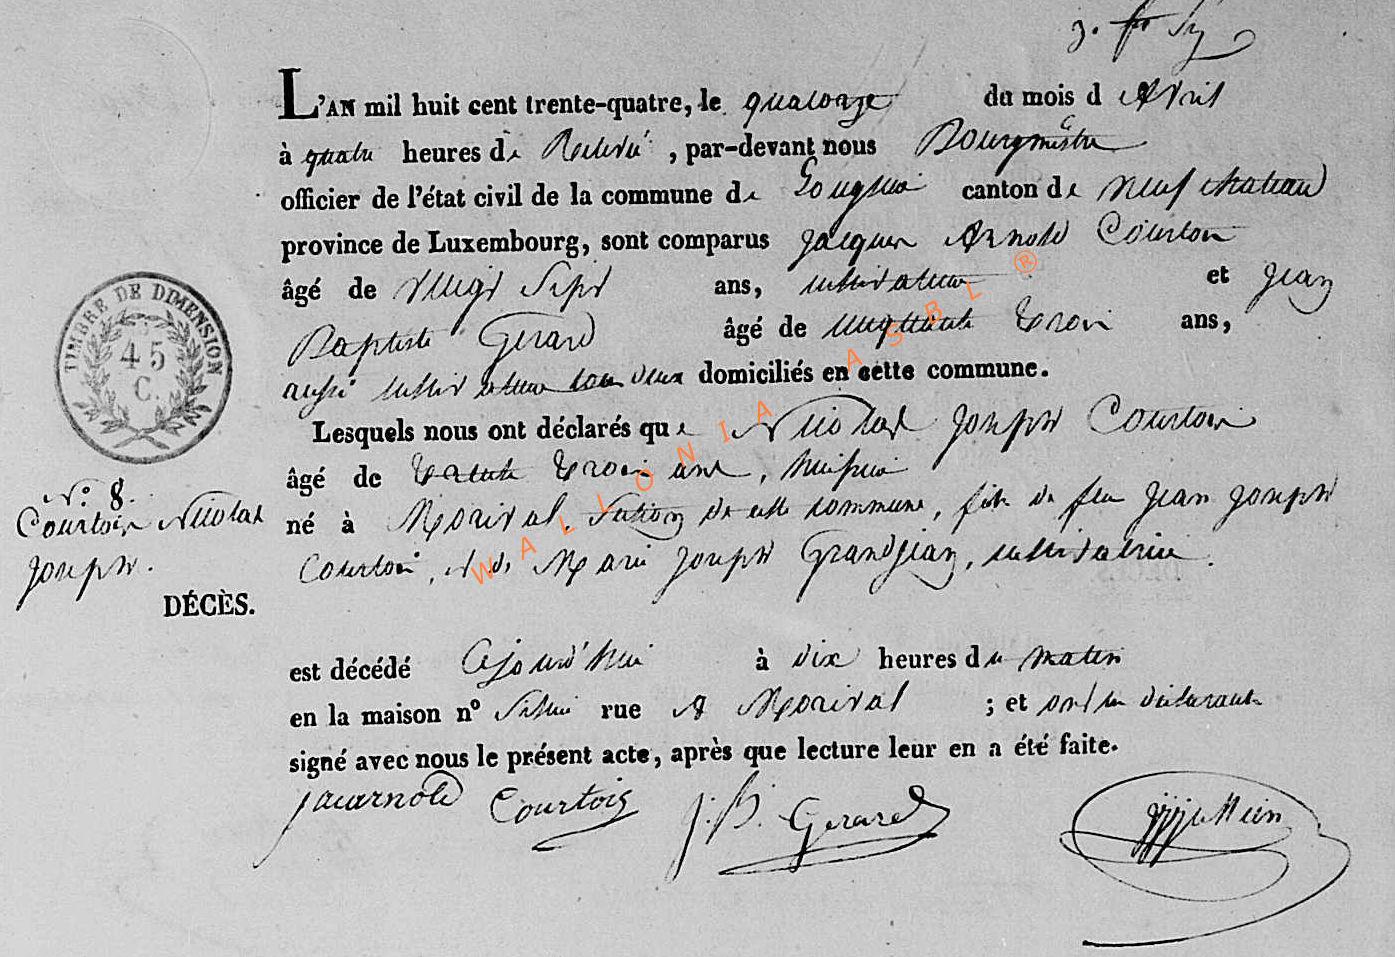 L'AN mil huit cent trente-quatre, le quatorze du mois d'Avril
à quatre heures de Relevé, par-devant nous Bourgmestre
officier de l'état civil de la commune de canton de neufchateau
province de Luxembourg, sont comparus Jacques Arnold Courtois
âgé de vingt Sept ans, cultivateur et Jean
Baptiste Gerard âgé de cinquante trois ans,
aussi cultivateur tous deux domiciliés en cette commune.
Lesquels nous ont déclarés que Nicolas Joseph Courtois
âgé de trente trois ans,
né à Morival, Section de cette commune, fils de feu Jean Joseph
Courtois, et de Marie Joseph Grandjean, cultivatrice.
est décédé Ajourd'hui à dix heures du matin
en la maison n° rue à Morival ; et ont les déclarants
signé avec nous le présent acte, après que lecture leur en a été faite.
Courtois J. B. Gerard
TIMBRE DE DIMENSION
45
C.
N° 8.
Courtois Nicolas
Joseph.
DÉCÈS.
WALLONIA ASBL ®